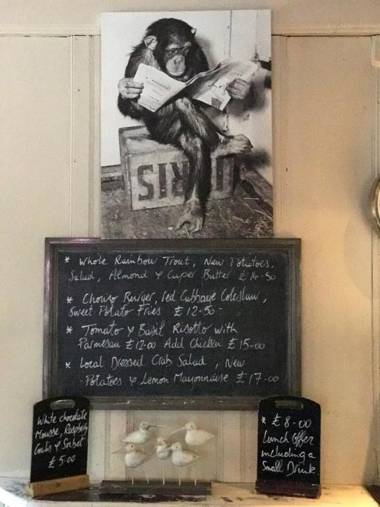 SIRIS
* Whole Rainbow Trout, New Potatoes,
Salad, Almond & Caper Butter £16-50
* Chorizo Burger, Red Cabbage Coleslaw,
Sweet Potato Fries £12-50
* Tomato & Basil Risotto with
Parmesan £12.00 Add Chicken £15-00
* Local Dressed Crab Salad, New
Potatoes & Lemon Mayonnaise £17.00
White chocolate
Mousse, Raspberry
Coulis & Sorbet
£5.00
* £8-00
Lunch Offer
including a
Small Drink